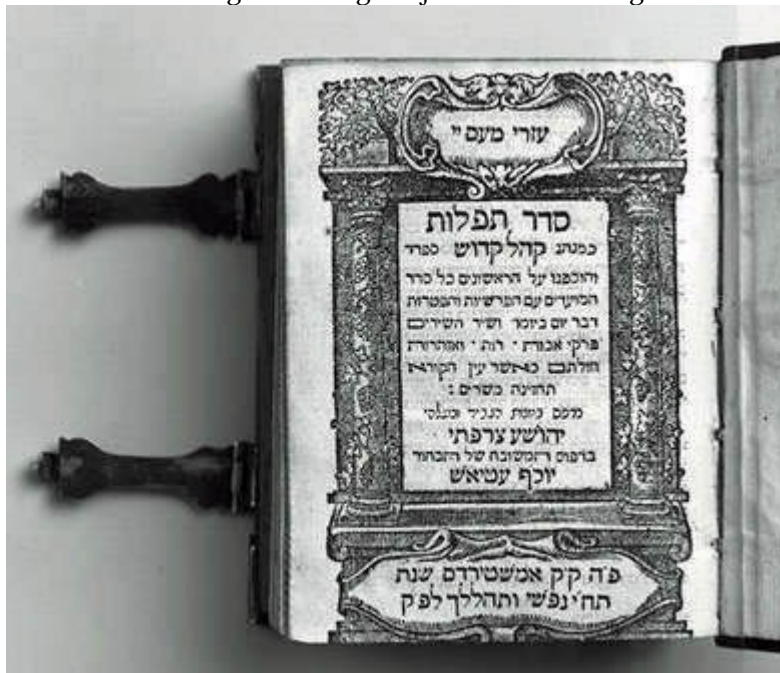 עזרי מעם יי
סדר תפלות
כמנהג קהל קדוש ספרד
והוספנו על הראשונים כל סדר
המועדים עם הפרשיות והפטרות
דבר יום ביומו ושיר השירים
פרקי אבות · רות · ואזהרות
זולתם כאשר עין הקורא
תחזינה משרים :
נדפס במצות הגביר
יהושע צרפתי
בדפוס המשובח של הבחור
יוסף עטיאש
פ"ה ק"ק אמשטירדם שנת
תח"י נפשי ותהללך לפ"ק